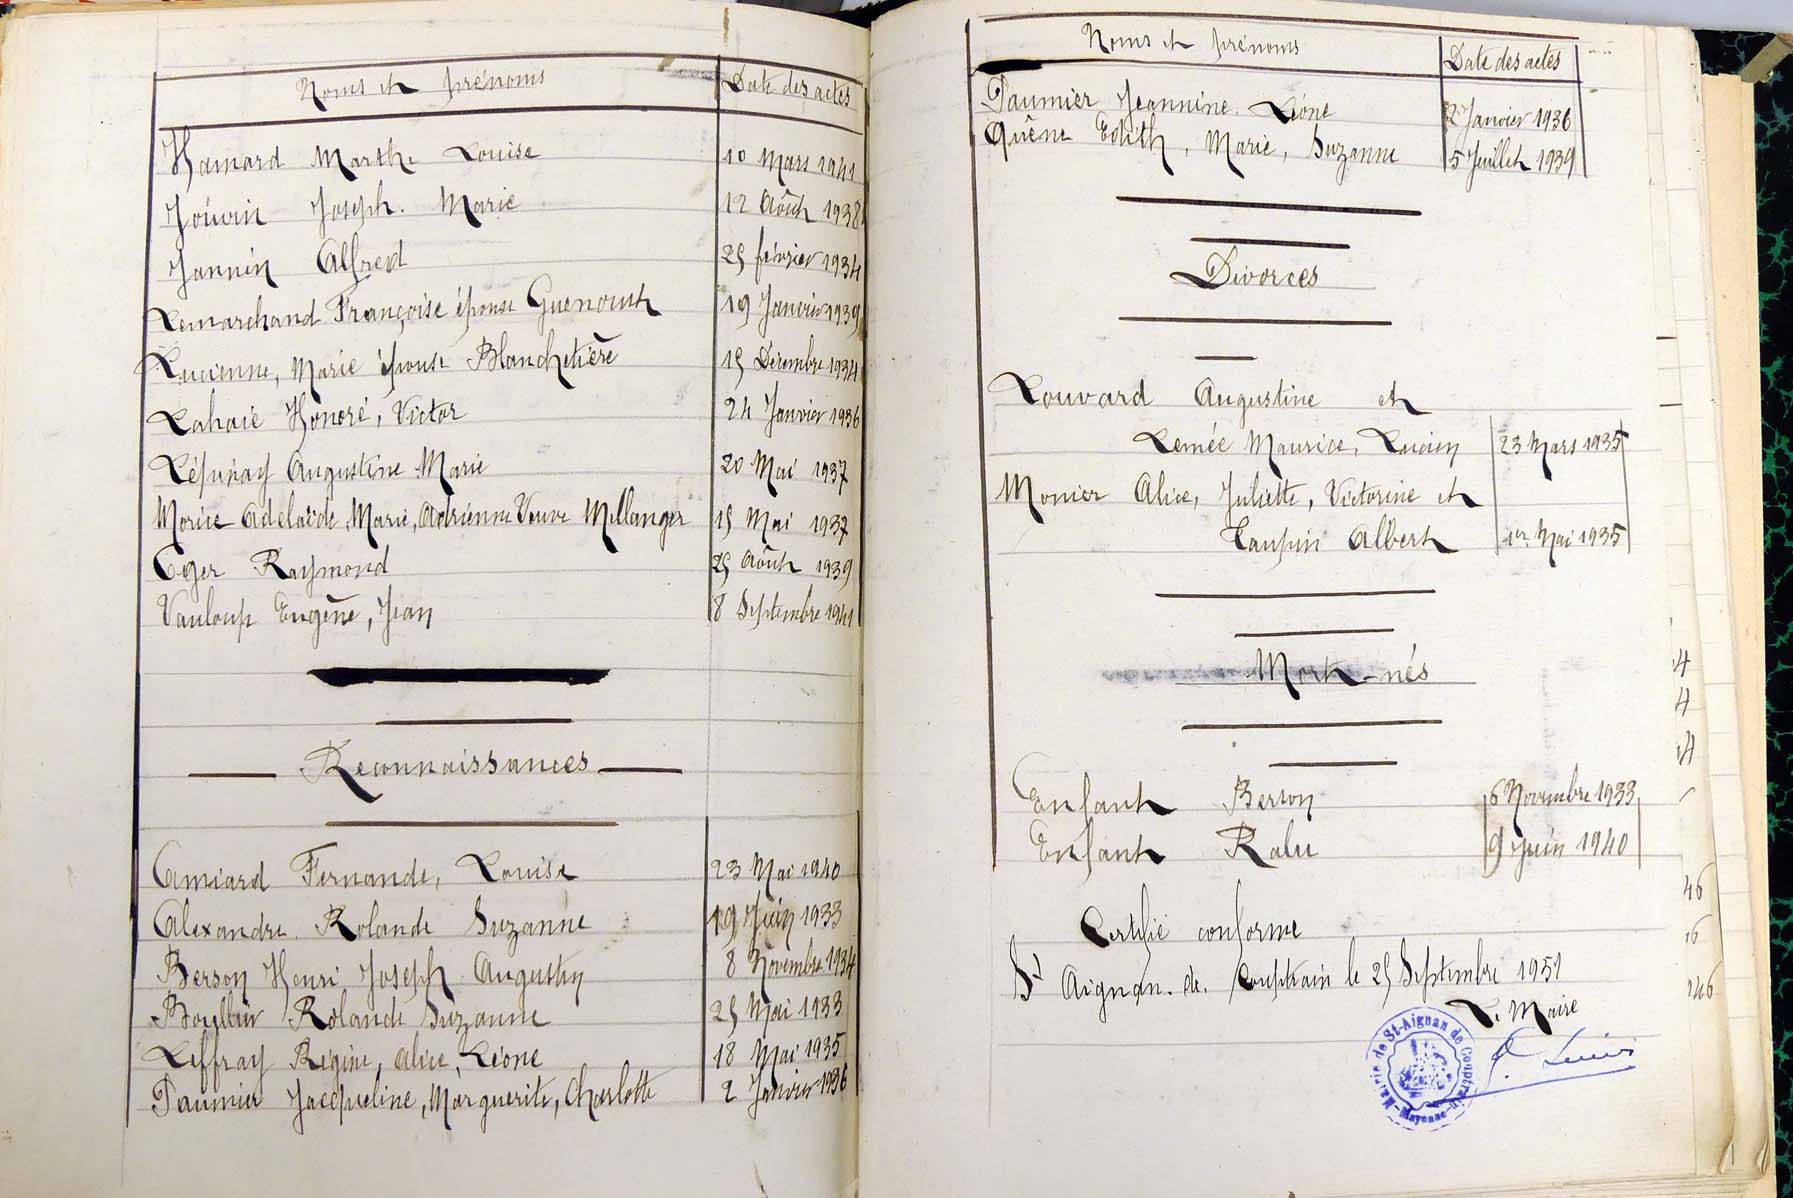 Noms et prénoms Date des actes
Hamard Marthe Louise 10 Mars 1941
Jouvin Joseph. Marie 12 Août 1938
Jannin Alfred 25 février 1934
Lemarchand Françoise épouse Guenoust 19 Janvier 1939
Lucienne, Marie épouse Blanchetière 15 Décembre 1934
Lahaie Honoré, Victor 24 Janvier 1936
Lépinay Augustine Marie 20 Mai 1937
Morice Adélaïde, Marie, Adrienne Veuve Mellanger 15 Mai 1937
Oger Raymond 25 Août 1939
Vauloup Eugène, Jean 8 Septembre 1941
Reconnaissances
Amiard Fernande, Louise 23 Mai 1940
Alexandre Rolande Suzanne 19 Juin 1933
Berson Henri Joseph Augustin 8 Novembre 1934
Boullier Rolande Suzanne 25 Mai 1933
Leffray Régine, Alice, Léone 18 Mai 1935
Paumier Jacqueline, Marguerite, Charlotte 2 Janvier 1936
Noms et prénoms Date des actes
Paumier Jeannine. Léone 2 Janvier 1936
Quêne Edith, Marie, Suzanne 5 Juillet 1939
Divorces
Louvard Augustine et
Lemée Maurice, Lucien 23 Mars 1935
Monier Alice, Juliette, Victorine et
Taupin Albert 1er Mai 1935
Mort-nés
Enfant Berson 6 Novembre 1933
Enfant Ralu 9 Juin 1940
Certifié conforme
St Aignan. de. Couptrain le 25 Septembre 1951
Le Maire
Mairie de St-Aignan de Couptrain -Mayenne-
4
4
14
46
16
146